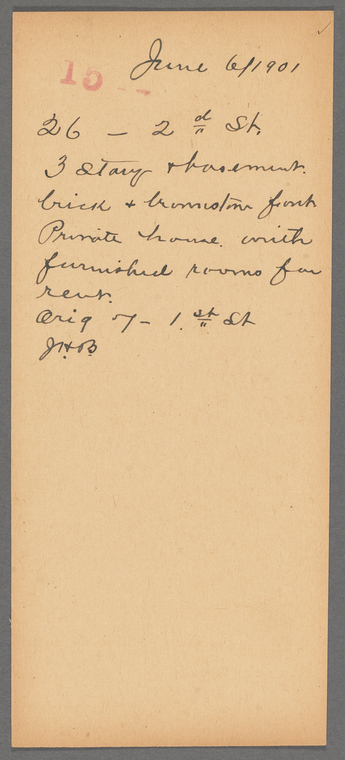 June 6/1901
15 --
26 – 2d St.
3 story & basement.
brick & brownstone front
Private house. with
furnished rooms for
rent.
Orig 7 – 1.st St
JHB